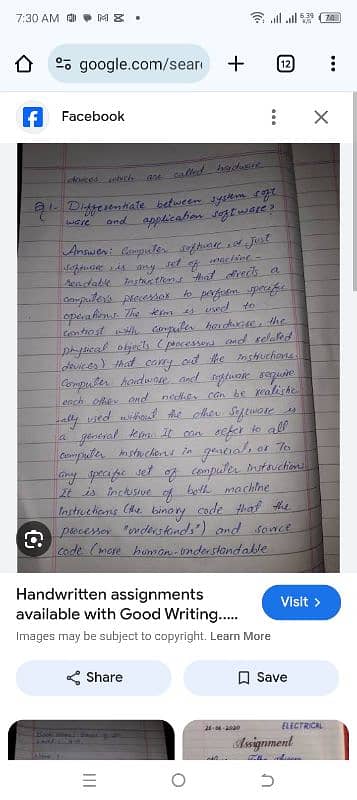 7:30 AM
5.39 K/s
74
google.com/sear
12
Facebook
devices which are called hardware
Q1. Differentiate between system soft
ware and application software?
Answer: Computer software, or Just
software is any set of machine-
Readable Instructions that directs a
computer's processor to perform specific
operations. The term is used to
contrast with computer hardware, the
physical objects (processors and related
devices) that carry out the instructions
Computer hardware and software require
each other and neither can be realistic
-ally used without the other Software is
a general term. It can refer to all
computer instructions in general, or To
any specific set of computer instructions
It is inclusive of both machine
Instructions (the binary code that the
processor "understands") and source
code (more human-understandable
Handwritten assignments
available with Good Writing.....
Visit >
Images may be subject to copyright. Learn More
Share
Save
25-06-2020
ELECTRICAL
Assignment